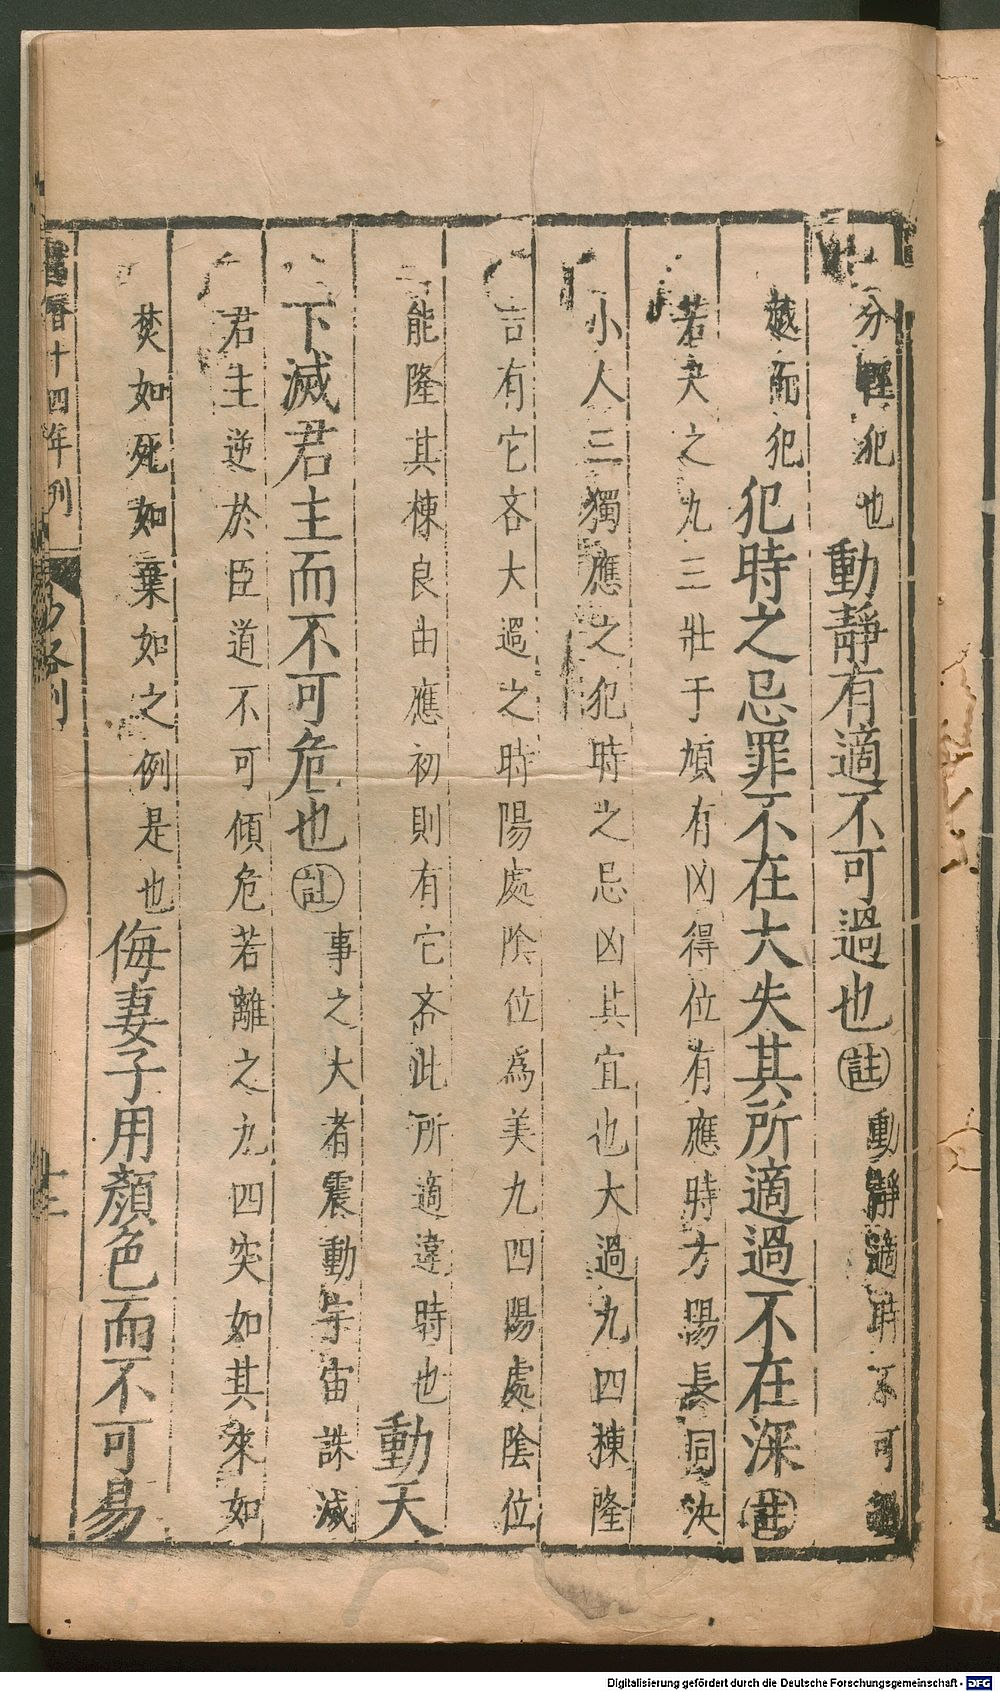 分輕犯也動靜有適不可過也註動靜適時不可過
越而犯犯時之忌罪不在大失其所適過不在深註
若夬之九三壯于頄有凶得位有應時方陽長同決
小人三獨應之犯時之忌凶其宜也大過九四棟隆
吉有它吝大過之時陽處陰位爲美九四陽處陰位
能隆其棟良由應初則有它吝此所適違時也動天
下滅君主而不可危也註事之大者震動宇宙誅滅
君主逆於臣道不可傾危若離之九四突如其來如
焚如死如棄如之例是也侮妻子用顏色而不可易
萬曆十四年刊 略例 十三
Digitalisierung gefördert durch die Deutsche Forschungsgemeinschaft - DFG